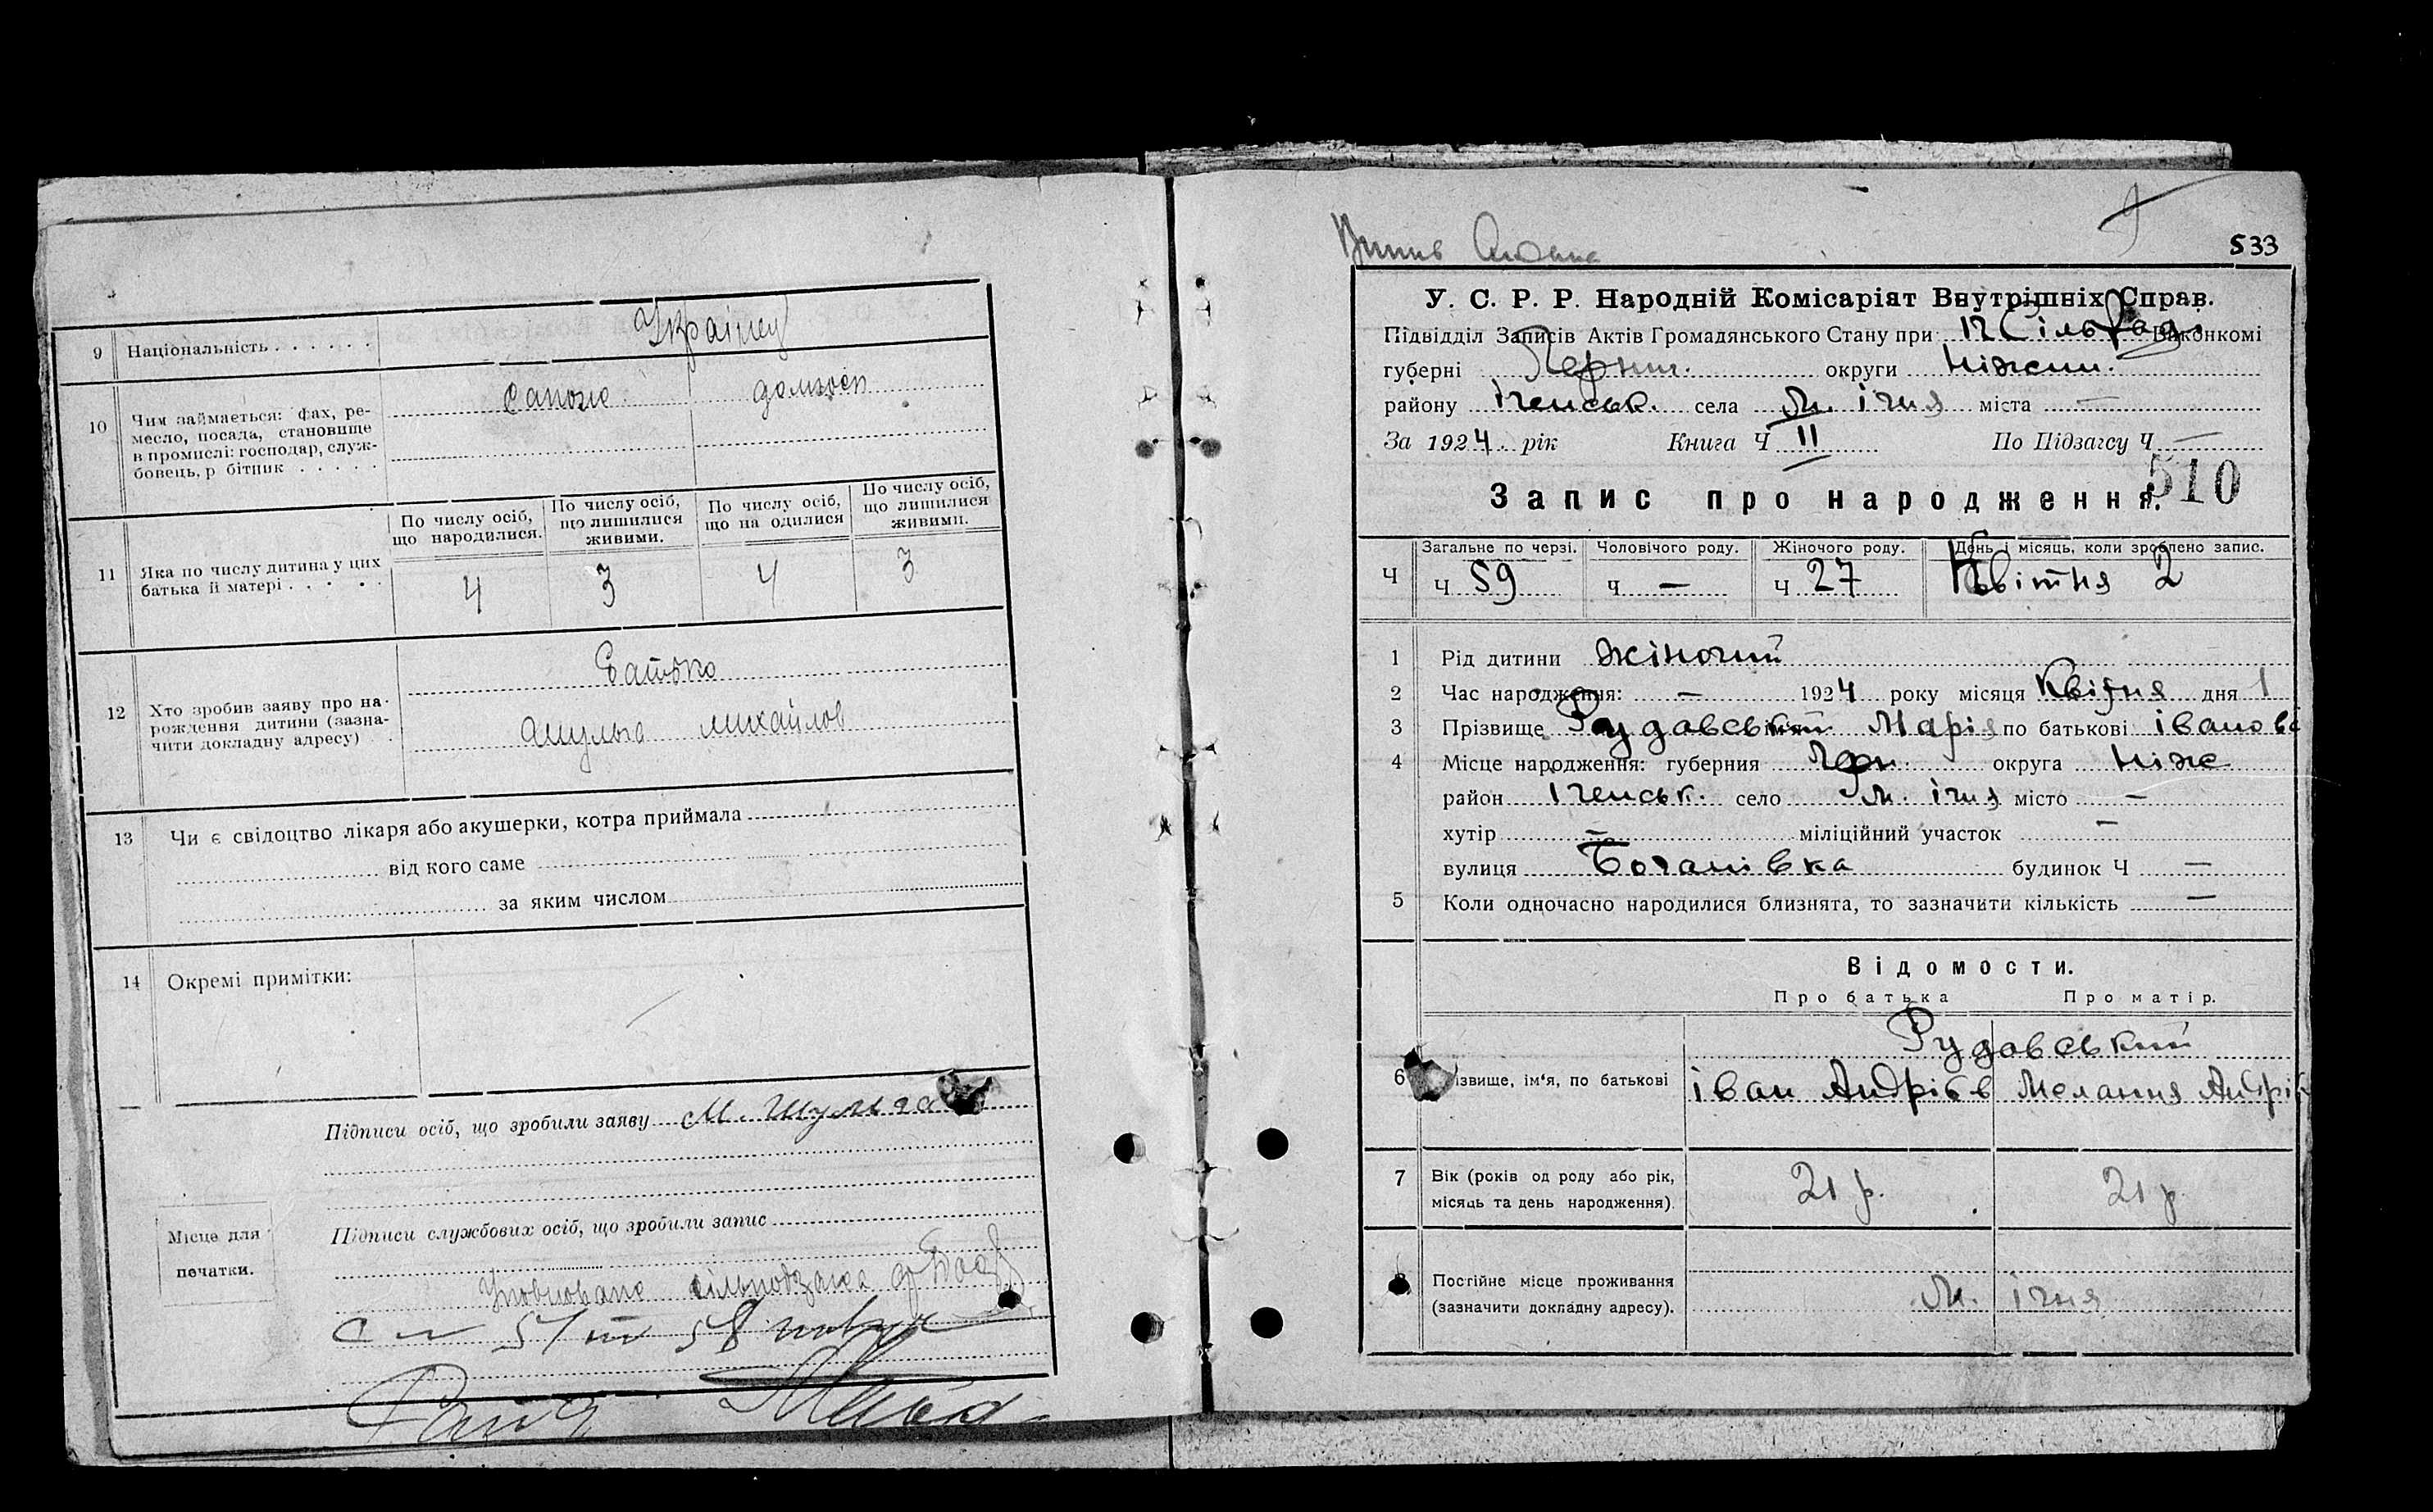 9 Національність . . . . . . Українці
10 Чим займається: фах, ре-
месло, посада, становище
в промислі: господар, служ-
бовець, р бітник . . . . .
сапож. домгосп
11 Яка по числу дитина у цих
батька й матері . . . . .
По числу осіб, що народилися.
По числу осіб, що лишилися живими.
По числу осіб, що на одилися
По числу осіб, що лишилися живими.
4 3 4 3
12 Хто зробив заяву про на-
рождення дитини (зазна-
чити докладну адресу) .
Батько
Шульга Михайлов
13 Чи є свідоцтво лікаря або акушерки, котра приймала
від кого саме
за яким числом
14 Окремі примітки:
Підписи осіб, що зробили заяву М. Шульга
Підписи службових осіб, що зробили запис
Місце для
печатки.
533
У. С. Р. Р. Народній Комісаріят Внутрішніх Справ.
Підвідділ Записів Актів Громадянського Стану при Сільрад. Виконкомі
губерні Черниг. округи Ніжин.
району Іченськ. села м. Ічня міста —
За 1924 . рік Книга Ч II По Підзагсу Ч —
510
Запис про народження.
Ч
Загальне по черзі. Чоловічого роду. Жіночого роду. День і місяць, коли зроблено запис.
Ч 59 Ч — Ч 27 Квітня 2
1 Рід дитини жіночий
2 Час народження: — 1924 року місяця Квітня дня 1
3 Прізвище Рудавський ім'я Марія по батькові Іванова
4 Місце народження: губерния Черн. округа Ніж
район Іченськ. село м. Ічня місто —
хутір — міліційний участок —
вулиця Боганівка будинок Ч —
5 Коли одночасно народилися близнята, то зазначити кількість —
Відомости.
Про батька Про матір.
Рудавський
6 ізвище, ім'я, по батькові Іван Андріев Мелания Андрі
7 Вік (років од роду або рік,
місяць та день народження). 21 р. 21 р
8 Постійне місце проживання
(зазначити докладну адресу). м. Ічня